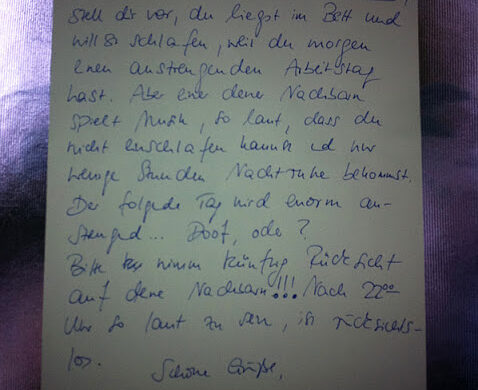 Stell dir vor, du liegst im Bett und
willst schlafen, weil du morgen
einen anstrengenden Arbeitstag
hast. Aber einer deiner Nachbarn
spielt Musik, so laut, dass du
nicht einschlafen kannst und nur
wenige Stunden Nachtruhe bekommst.
Der folgende Tag wird enorm an-
stengend... Doof, oder?
Bitte nimm künftig Rücksicht
auf deine Nachbarn!!! Nach 22⁰⁰
Uhr so laut zu sein, ist rücksichts-
los.
Schöne Grüße,